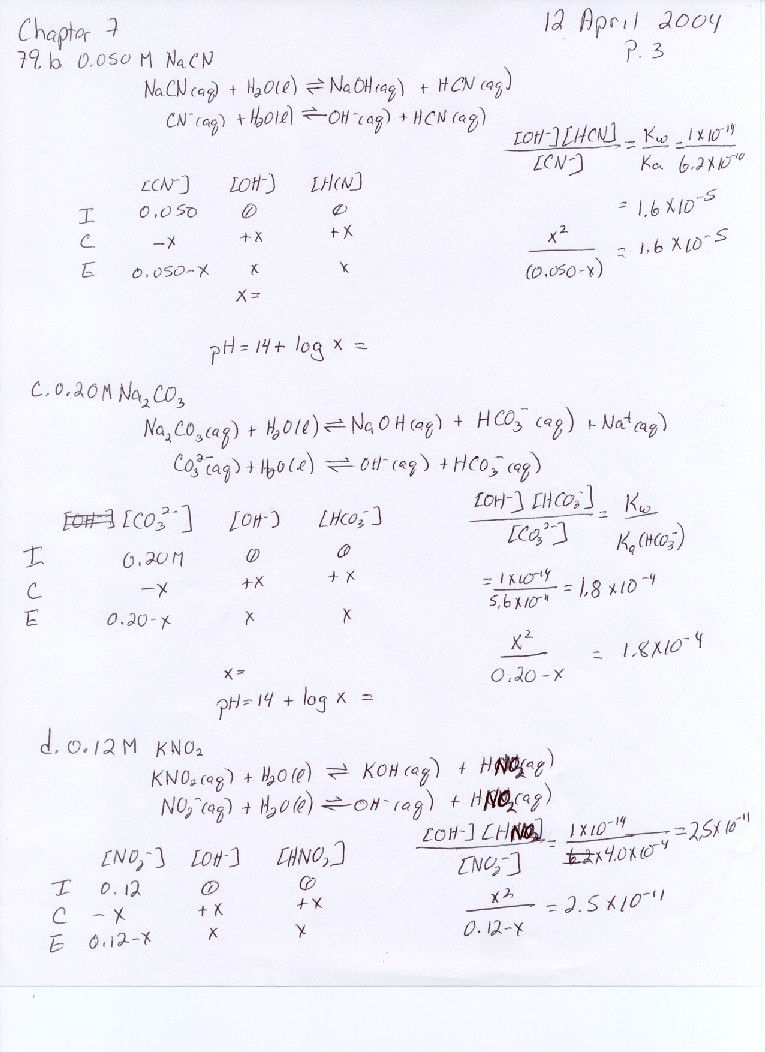 Chapter 7
12 April 2004
p. 3
79. b 0.050 M NaCN
NaCN(aq) + H₂O(l) ⇌ NaOH(aq) + HCN(aq)
CN⁻(aq) + H₂O(l) ⇌ OH⁻(aq) + HCN(aq)
[OH⁻][HCN]/[CN⁻] = Kw/Ka = 1×10⁻¹⁴/6.2×10⁻¹⁰
= 1.6×10⁻⁵
x²/(0.050-x) = 1.6×10⁻⁵
[CN⁻] [OH⁻] [HCN]
I 0.050 0 0
C -x +x +x
E 0.050-x x x
x=
pH = 14 + log x =
c. 0.20M Na₂CO₃
Na₂CO₃(aq) + H₂O(l) ⇌ NaOH(aq) + HCO₃⁻(aq) + Na⁺(aq)
CO₃²⁻(aq) + H₂O(l) ⇌ OH⁻(aq) + HCO₃⁻(aq)
[OH⁻] [CO₃²⁻] [OH⁻] [HCO₃⁻]
I 0.20M 0 0
C -x +x +x
E 0.20-x x x
[OH⁻][HCO₃⁻]/[CO₃²⁻] = Kw/Ka(HCO₃⁻)
= 1×10⁻¹⁴/5.6×10⁻¹¹ = 1.8×10⁻⁴
x²/0.20-x = 1.8×10⁻⁴
x=
pH = 14 + log x =
d. 0.12M KNO₂
KNO₂(aq) + H₂O(l) ⇌ KOH(aq) + HNO₂(aq)
NO₂⁻(aq) + H₂O(l) ⇌ OH⁻(aq) + HNO₂(aq)
[OH⁻][HNO₂]/[NO₂⁻] = 1×10⁻¹⁴/4.0×10⁻⁴ = 2.5×10⁻¹¹
[NO₂⁻] [OH⁻] [HNO₂]
I 0.12 0 0
C -x +x +x
E 0.12-x x x
x²/0.12-x = 2.5×10⁻¹¹